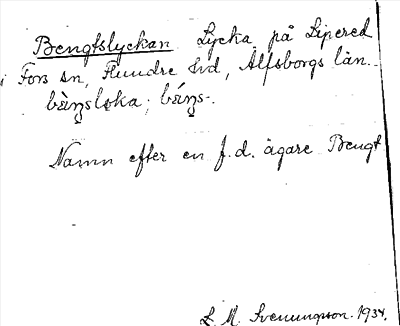 Bengtslyckan Lycka på Lipered
i Fors sn, Flundre hd, Älfsborgs län.
bàŋsloka; báŋs-.
Namn efter en f.d. ägare Bengt
L. M. Svenungsson. 1934.